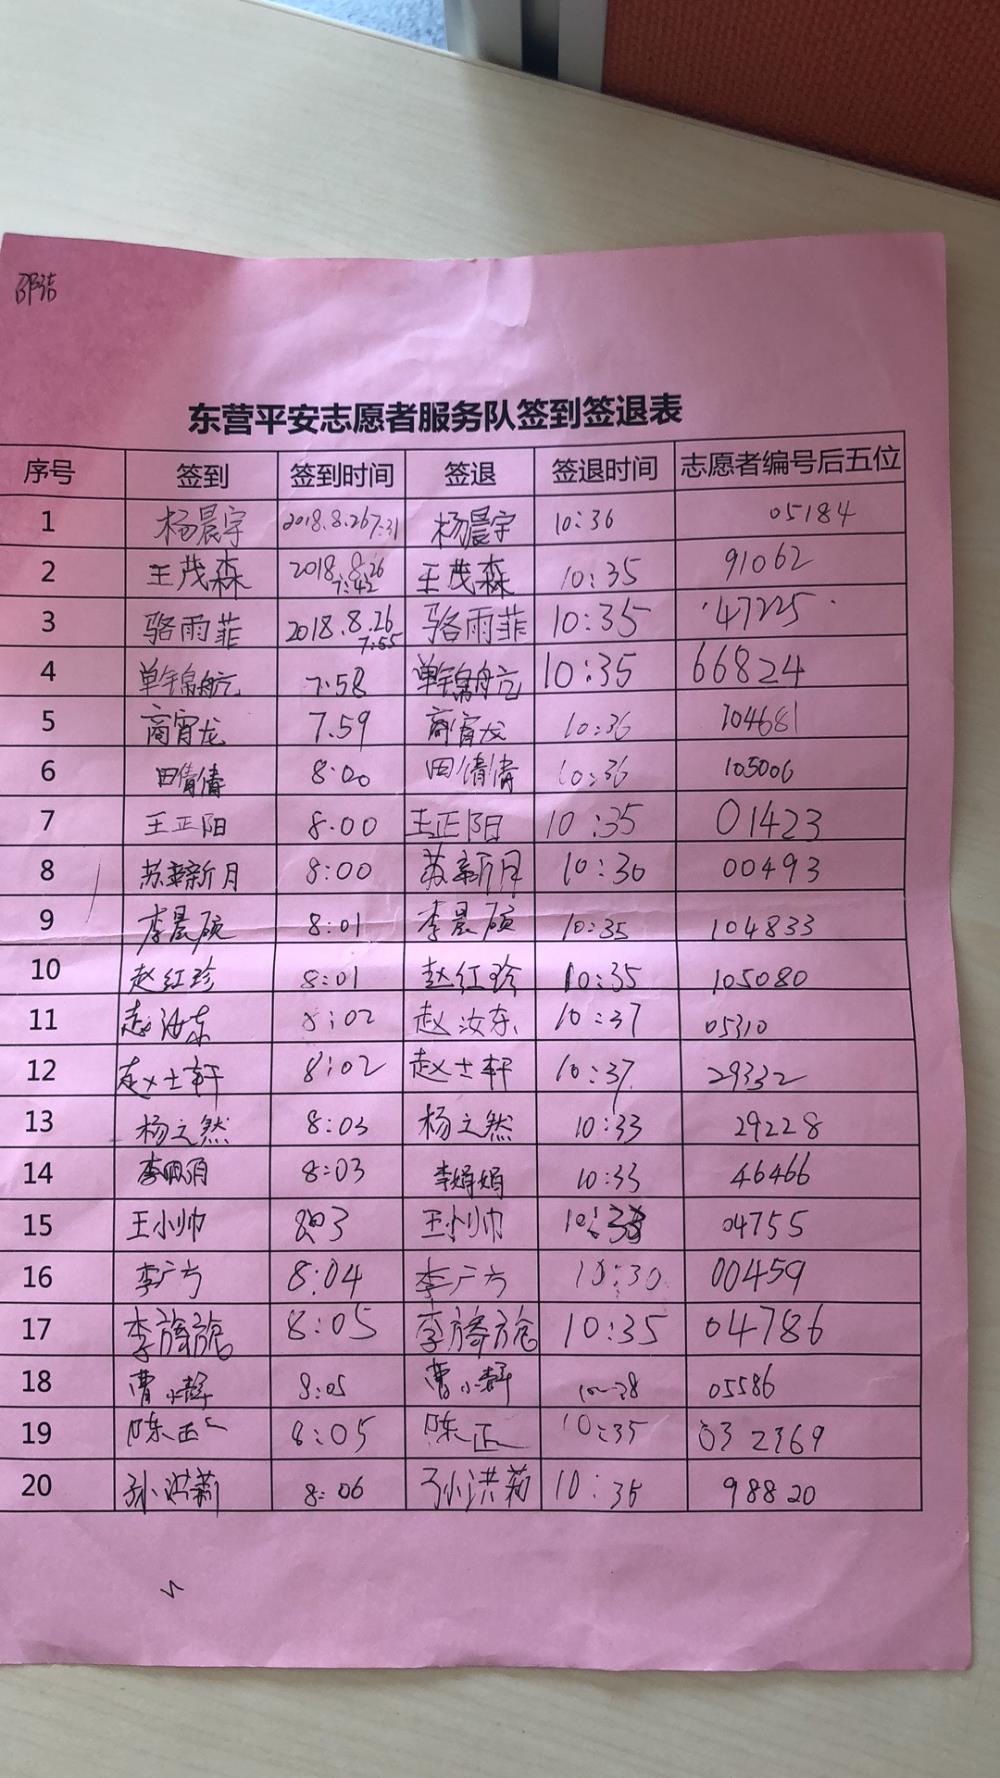 邵洁
东营平安志愿者服务队签到签退表
序号 签到 签到时间 签退 签退时间 志愿者编号后五位
1 杨晨宇 2018.8.26 7:31 杨晨宇 10:36 05184
2 王茂森 2018.8.26 7:42 王茂森 10:35 91062
3 骆雨菲 2018.8.26 7:55 骆雨菲 10:35 47225
4 单锦航 7.58 单锦航 10:35 66824
5 商宵龙 7.59 商宵龙 10:36 104681
6 田倩倩 8:00 田倩倩 10:36 105006
7 王正阳 8.00 王正阳 10:35 01423
8 苏新月 8:00 苏新月 10:30 00493
9 李晨硕 8:01 李晨硕 10:35 104833
10 赵红珍 8:01 赵红珍 10:35 105080
11 赵汝东 8:02 赵汝东 10:37 05310
12 赵士轩 8:02 赵士轩 10:37 29332
13 杨之然 8:03 杨之然 10:33 29228
14 李娟娟 8:03 李娟娟 10:33 46466
15 王小帅 803 王小帅 04755
16 李广方 8:04 李广方 10:30 00459
17 李旖旎 8:05 李旖旎 10:35 04786
18 曹小静 8:05 曹小静 05586
19 陈正 8:05 陈正 10:35 032369
20 孙洪莉 8:06 孙洪莉 10:35 98820